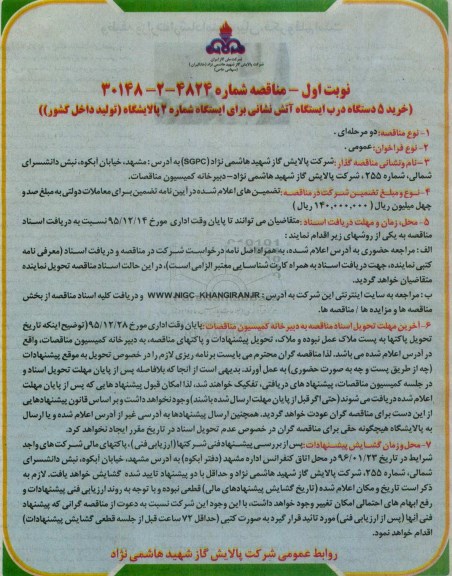 شرکت ملی گاز ایران
شرکت پالایش گاز شهید هاشمی نژاد (خانگیران)
(سهامی خاص)
نوبت اول - مناقصه شماره ۴۸۲۴-۲-۳۰۱۴۸
(خرید ۵ دستگاه درب ایستگاه آتش نشانی برای ایستگاه شماره ۲ پالایشگاه (تولید داخل کشور))
۱- نوع مناقصه: دو مرحله‌ای.
۲- نوع فراخوان: عمومی.
۳- نام ونشانی مناقصه گذار: شرکت پالایش گاز شهید هاشمی نژاد (SGPC) به آدرس: مشهد، خیابان آبکوه، نبش دانشسرای
شمالی، شماره ۲۵۵، شرکت پالایش گاز شهید هاشمی نژاد-دبیرخانه کمیسیون مناقصات.
۴- نوع و مبلغ تضمین شرکت در مناقصه: تضمین های اعلام شده در آیین نامه تضمین برای معاملات دولتی به مبلغ صد و
چهل میلیون ریال (۱۴۰,۰۰۰,۰۰۰ ریال)
۵- محل، زمان و مهلت دریافت اسناد: متقاضیان می توانند تا پایان وقت اداری مورخ ۹۵/۱۲/۱۴ نسبت به دریافت اسناد
مناقصه به یکی از روشهای زیر اقدام نمایند:
الف: مراجعه حضوری به آدرس اعلام شده، به همراه اصل نامه درخواست شرکت در مناقصه و دریافت اسناد (معرفی نامه
کتبی نماینده، جهت دریافت اسناد به همراه کارت شناسایی معتبر الزامی است)، در این حالت اسناد مناقصه تحویل نماینده
متقاضیان خواهد گردید.
ب: مراجعه به سایت اینترنتی این شرکت به آدرس: WWW.NIGC-KHANGIRAN.IR و دریافت کلیه اسناد مناقصه از بخش
مناقصه ها و مزایده ها / مناقصه ها.
۶- آخرین مهلت تحویل اسناد مناقصه به دبیرخانه کمیسیون مناقصات: پایان وقت اداری مورخ ۹۵/۱۲/۲۸ (توضیح اینکه تاریخ
تحویل پاکتها به پست ملاک عمل نبوده و ملاک، تحویل پیشنهادات و پاکتهای مناقصه، به دبیرخانه کمیسیون مناقصات، واقع
در آدرس اعلام شده می باشد. لذا مناقصه گران محترم می بایست برنامه ریزی لازم را در خصوص تحویل به موقع پیشنهادات
(چه از طریق پست و چه به صورت حضوری) به عمل آورند. بدیهی است از آنجا که بلافاصله پس از پایان مهلت تحویل اسناد و
در جلسه کمیسیون مناقصات، پیشنهاد های دریافتی، تفکیک خواهند شد، لذا امکان قبول پیشنهاد هایی که پس از پایان مهلت
اعلام شده دریافت می شوند (حتی اگر قبل از پایان مهلت ارسال شده باشند) وجود نخواهد داشت و بر اساس قانون پیشنهادهایی
از این دست برای مناقصه گران عودت خواهد گردید. همچنین ارسال پیشنهادها به آدرسی غیر از آدرس اعلام شده و یا ارسال
به پالایشگاه هیچگونه حقی برای مناقصه گران در خصوص عدم تحویل اسناد در تاریخ مقرر ایجاد نخواهد کرد.
۷- محل وزمان گشایش پیشنهادات: پس از بررسی پیشنهاد فنی شرکتها (ارزیابی فنی)، پاکتهای مالی شرکت های واجد
شرایط در تاریخ ۹۶/۰۱/۲۳ در محل اتاق کنفرانس اداره مشهد (دفتر آبکوه) به آدرس مشهد، خیابان آبکوه، نبش دانشسرای
شمالی، شماره ۲۵۵، شرکت پالایش گاز شهید هاشمی نژاد و حداقل با دو پیشنهاد تایید شده گشایش خواهد یافت. لازم به
ذکر است تاریخ و مکان اعلام شده (تاریخ گشایش پیشنهادهای مالی) قطعی نبوده و با توجه به روند ارزیابی فنی پیشنهادات و
رفع ابهام های احتمالی امکان تغییر وجود خواهد داشت، با این وجود این شرکت نسبت به دعوت از مناقصه گرانی که پیشنهاد
فنی آنها (پس از ارزیابی فنی) مورد تائید قرار گیرد به صورت کتبی (حداقل ۷۲ ساعت قبل از جلسه قطعی گشایش پیشنهادات)
اقدام خواهد نمود.
روابط عمومی شرکت پالایش گاز شهید هاشمی نژاد